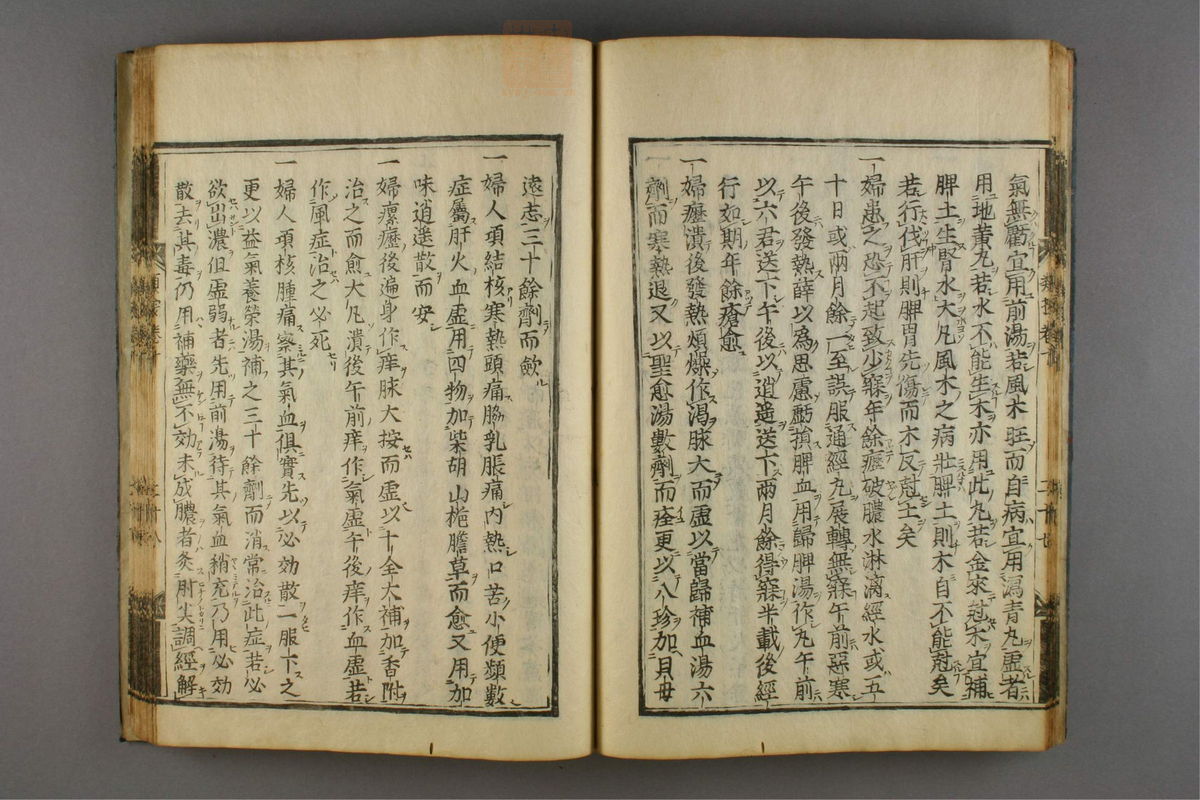 氣無虧宜用前湯若風木旺而自病宜用瀉青丸虛者
用地黄丸若水不能生木亦用此丸若金來尅木宜補
脾土生腎水大凡風木之病壯脾土則木自不能尅矣
若行伐肝則脾胃先傷而木反尅土矣
一婦患之恐不起致少寐年餘瘧破膿水淋漓經水或五
十日或兩月餘一至誤服通經丸展轉無寐午前惡寒
午後發熱薛以為思慮虧損脾血用歸脾湯作丸午前
以六君送下午後以逍遙送下兩月餘得寐半載後經
行如期年餘瘡愈
一婦瘧潰後發熱煩燥作渴脉大而虛以當歸補血湯六
劑而寒熱退又以聖愈湯數劑而痊更以八珍加貝母
遠志三十餘劑而歛
一婦人項結核寒熱頭痛脇乳脹痛内熱口苦小便頻數
症屬肝火血虛用四物加柴胡山梔膽草而愈又用加
味逍遙散而安
一婦瘰癧後遍身作痒脉大按而虛以十全大補加香附
治之而愈大凡潰後午前痒作氣虛午後痒作血虛若
作風症治之必死
一婦人項核腫痛察其氣血俱實先以必効散一服下之
更以益氣養榮湯補之三十餘劑而消常治此症若必
欲出濃但虛弱者先用前湯待其氣血稍充乃用必効
散去其毒仍用補藥無不効未成膿者灸肘尖調經解